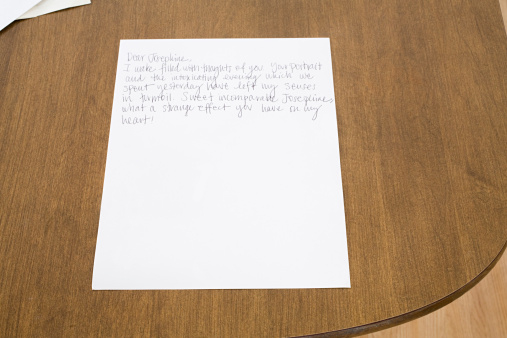 Dear Josephine,
I wake filled with thoughts of you. Your portrait
and the intoxicating evening which we
spent yesterday have left my senses
in turmoil. Sweet incomparable Josephine,
what a strange effect you have on my
heart!